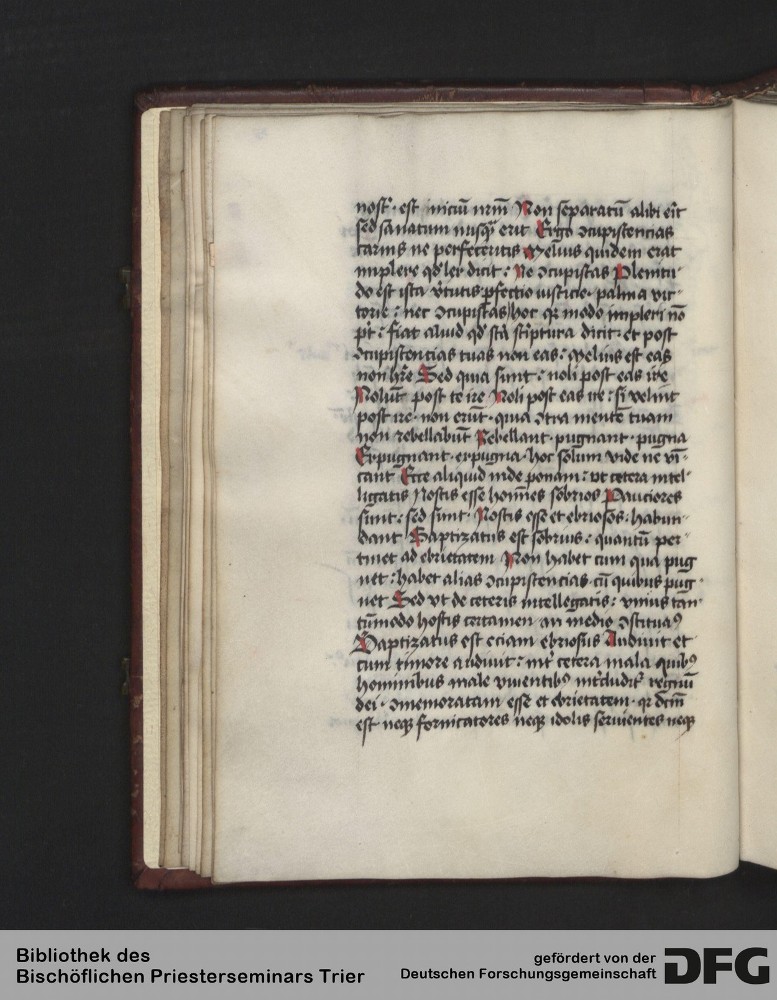 nost᷑· est iniciū nr̄m Non separatū alibi er̄it
sed sanatum nusqᷓ erit Ergo ↄcupiscencias
carnis ne perfeceritis Melius quidem erat
implere qd̛ lex dicit : Ne ↄcupiscas Plenitu-
do est ista v̛tutis· ꝑfectio iusticie· palma vic-
torie : nec ↄcupiscas hoc qꝛ modo impleri nō
pt̄ : fiat aliud qd̛ sc̄a sc̛ptura dicit: et post
ↄcupiscencias tuas non eas: Melius est eas
non hr̄e Sed quia sunt : noli post eas ire
Nolūt post te ire Noli post eas ire : si velint
post ire· non erūt· quia ↄtra mentē tuam
non rebellabūt Rebellant· pugnant· pugna
Expugnant· expugna· hoc solum vide ne vī-
cant Ecce aliquid inde ponam : vt cetera intel-
ligatis Nostis esse homīes sobrios Pauciores
sunt : sed sunt· Nostis esse et ebriosos· habun-
dant Baptizatus est sobrius : quantū per-
tinet ad ebrietatem Non habet cum qua pug
net : habet alias ↄcupiscencias· cū quibus pug-
net Sed vt de ceteris intellegatis : vnius tan-
tūmodo hostis certamen in medio ↄstituaꝰ
Baptizatus est eciam ebriosus Audiuit et
cum timore audiuit : int̛ cetera mala quibꝰ
hominibus male viuentibꝰ int̛cludit᷑ regnū
dei· ↄmemoratam esse et ebrietatem· qꝛ dc̄m
est neqꝫ fornicatores neqꝫ idolis seruientes neqꝫ
Bibliothek des
Bischöflichen Priesterseminars Trier
gefördert von der
Deutschen Forschungsgemeinschaft
DFG